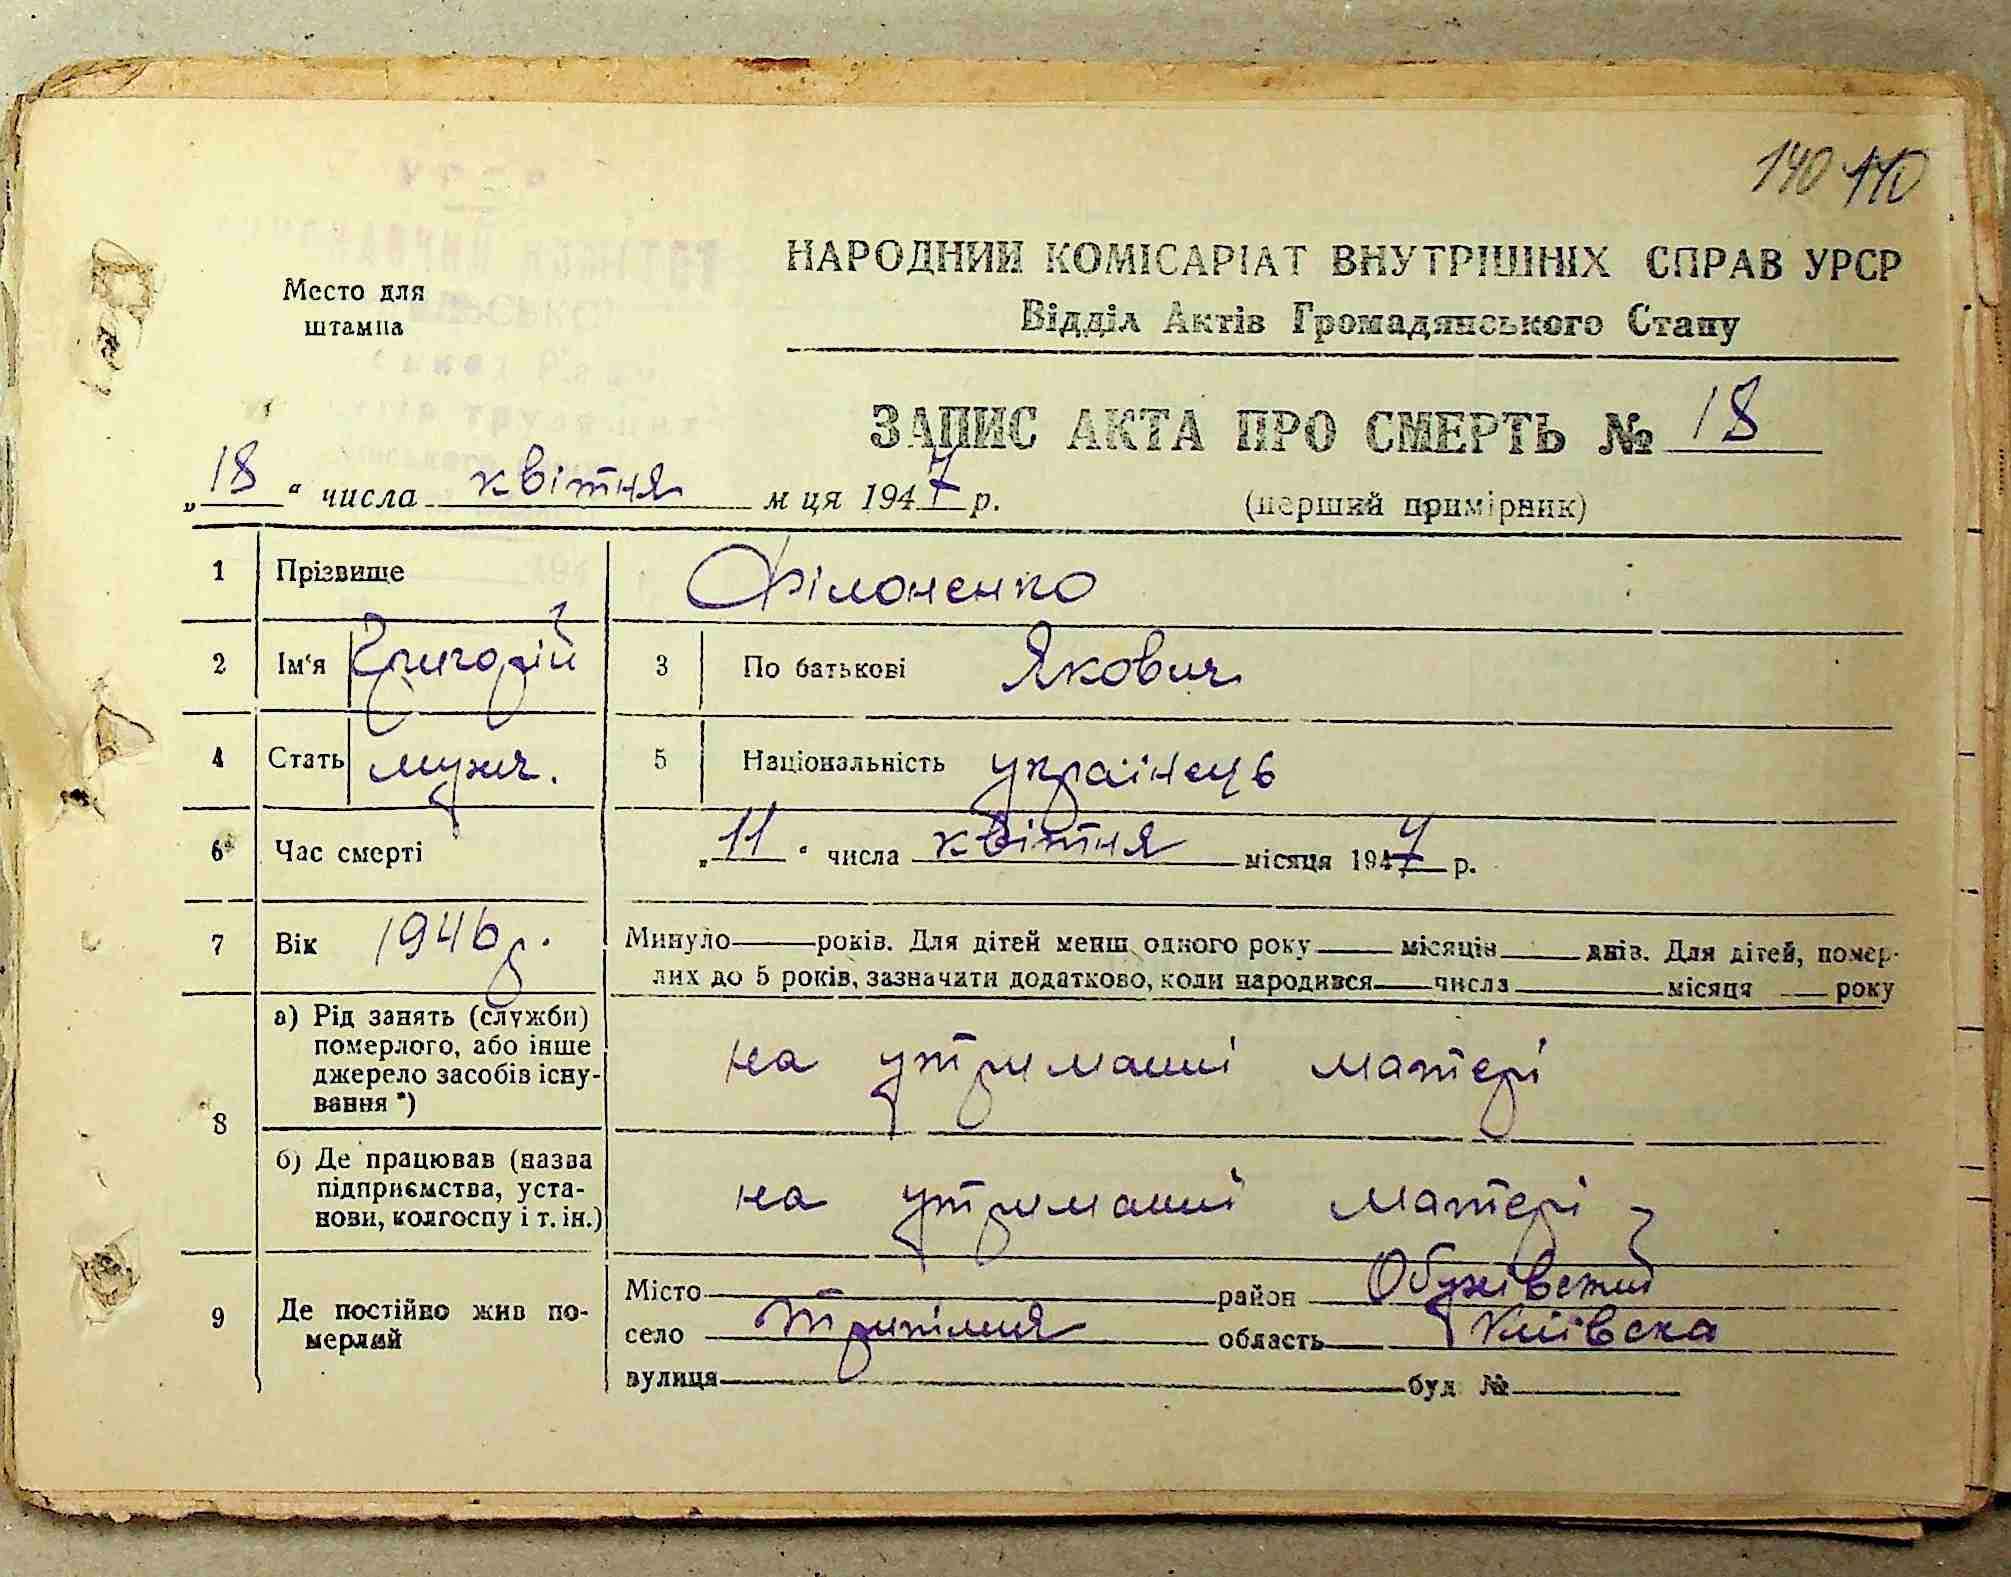 140 140
Место для
штампа
НАРОДНИЙ КОМІСАРІАТ ВНУТРІШНІХ СПРАВ УРСР
Відділ Актів Громадянського Стану
ЗАПИС АКТА ПРО СМЕРТЬ № 18
„18“ числа квітня м ця 1947 р.
(перший примірник)
1 Прізвище Філоненко
2 Ім‘я Григорій 3 По батькові Якович
4 Стать мужч. 5 Національність українець
6 Час смерті „11“ числа квітня місяця 1947 р.
7 Вік 1946 р. Минуло років. Для дітей менш одного року місяців днів. Для дітей, помер-
лих до 5 років, зазначити додатково, коли народився числа місяця року
8 а) Рід занять (служби)
померлого, або інше
джерело засобів існу-
вання *)
на утриманні матері
б) Де працював (назва
підприємства, уста-
нови, колгоспу і т. ін.)
на утриманні матері
9 Де постійно жив по-
мерлий
Місто район Обухівський
село Трипілля область Київська
вулиця буд №